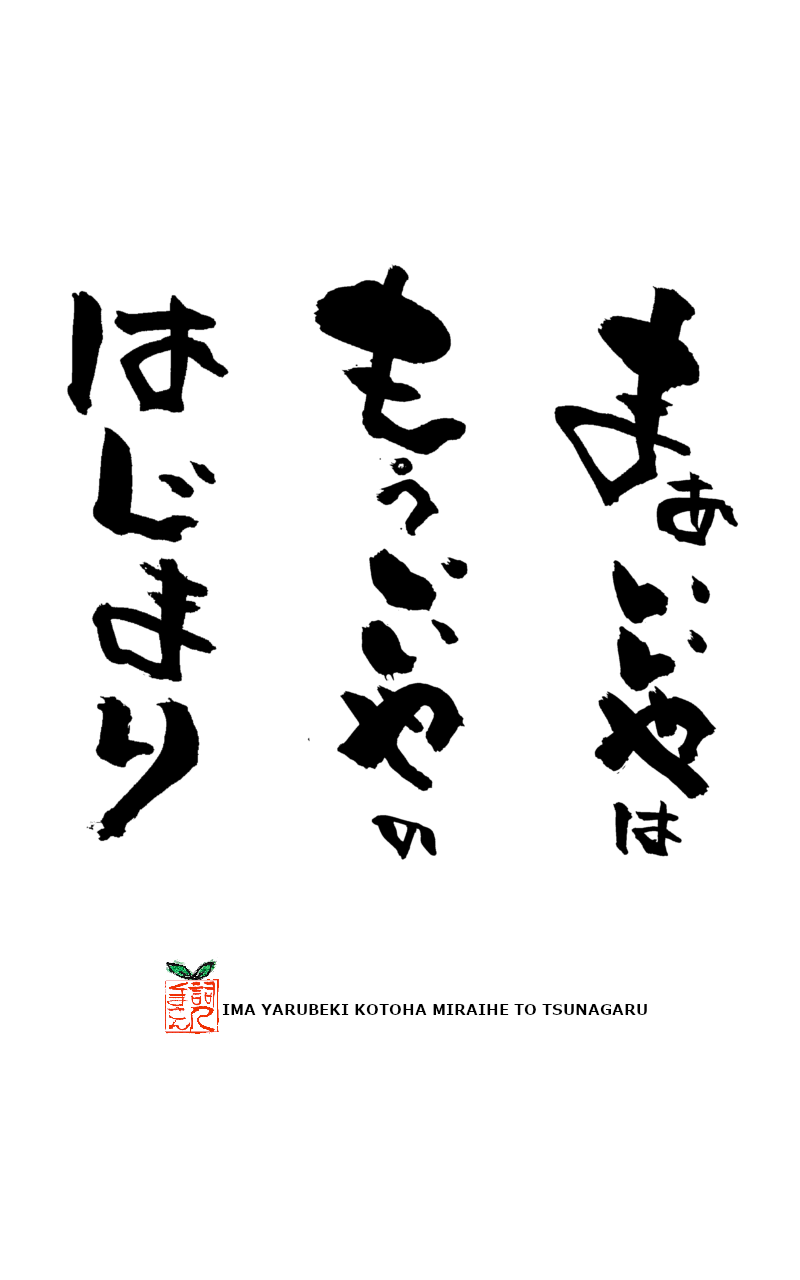 まぁいいやは
もぅいいやの
はじまり
IMA YARUBEKI KOTOHA MIRAIHE TO TSUNAGARU